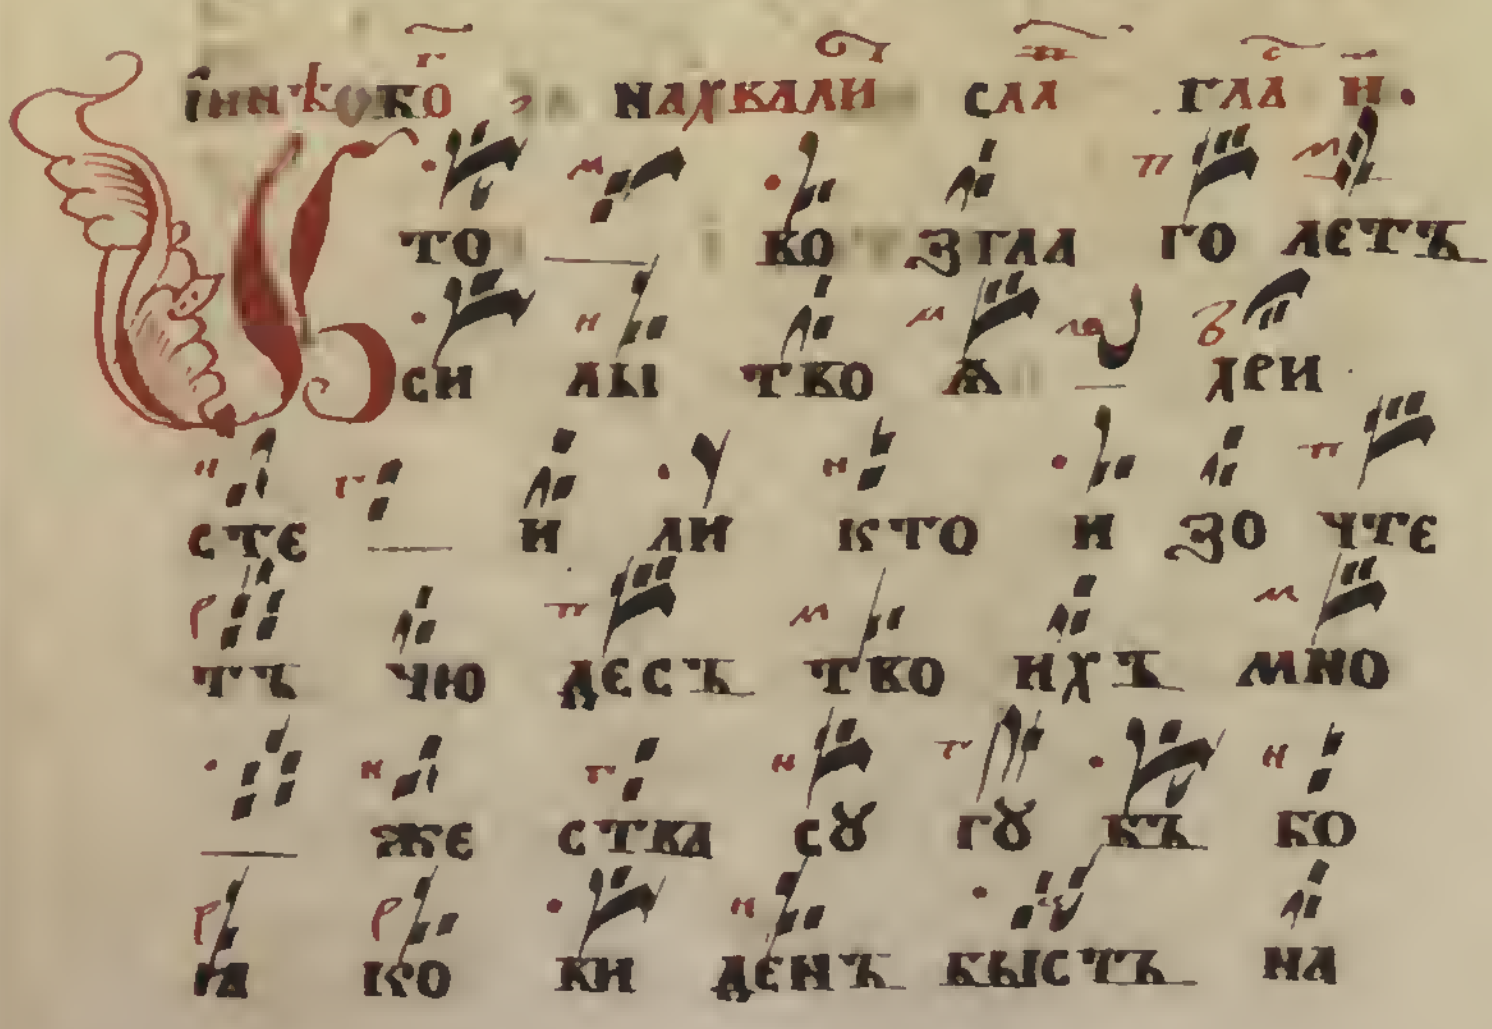 на хвали сла гла и
Кто во згла го летъ
си лы тво ѧ дри
сте и ли кто и зо чте
тъ чю десъ тво ихъ мно
же ства сꙋ гꙋ бъ бо
ꙗ ко ви денъ бысть на